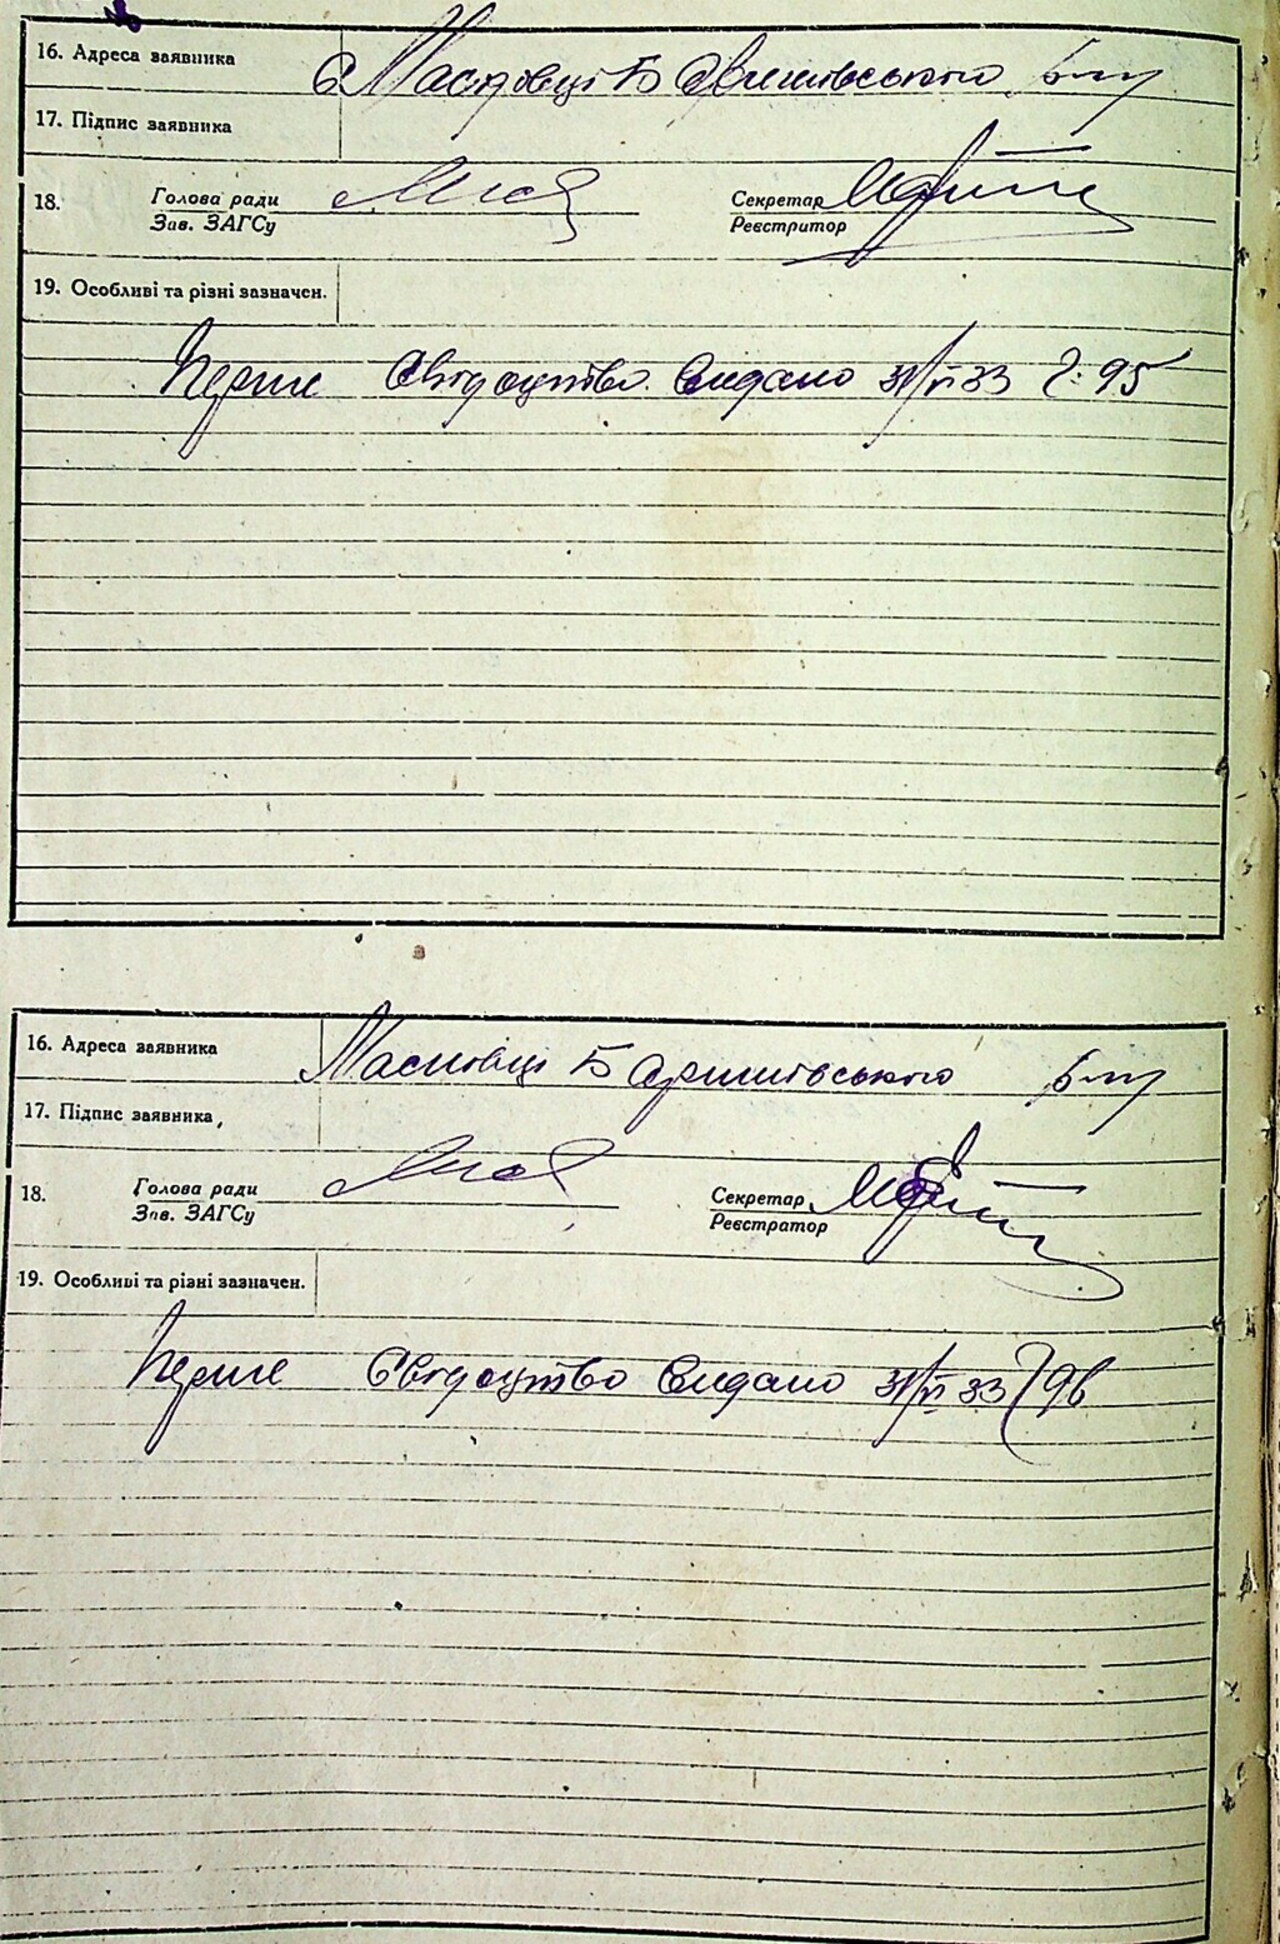 16. Адреса заявника с Масківці Баришівського р-ну
17. Підпис заявника
18. Голова ради Секретар
Зав. ЗАГСу Реєстратор
19. Особливі та різні зазначен.
Перше свідоцтво видано 31/VI 33 95
16. Адреса заявника Масківці Баришівського р-ну
17. Підпис заявника
18. Голова ради Секретар
Зав. ЗАГСу Реєстратор
19. Особливі та різні зазначен.
Перше свідоцтво видано 31/VI 33 96